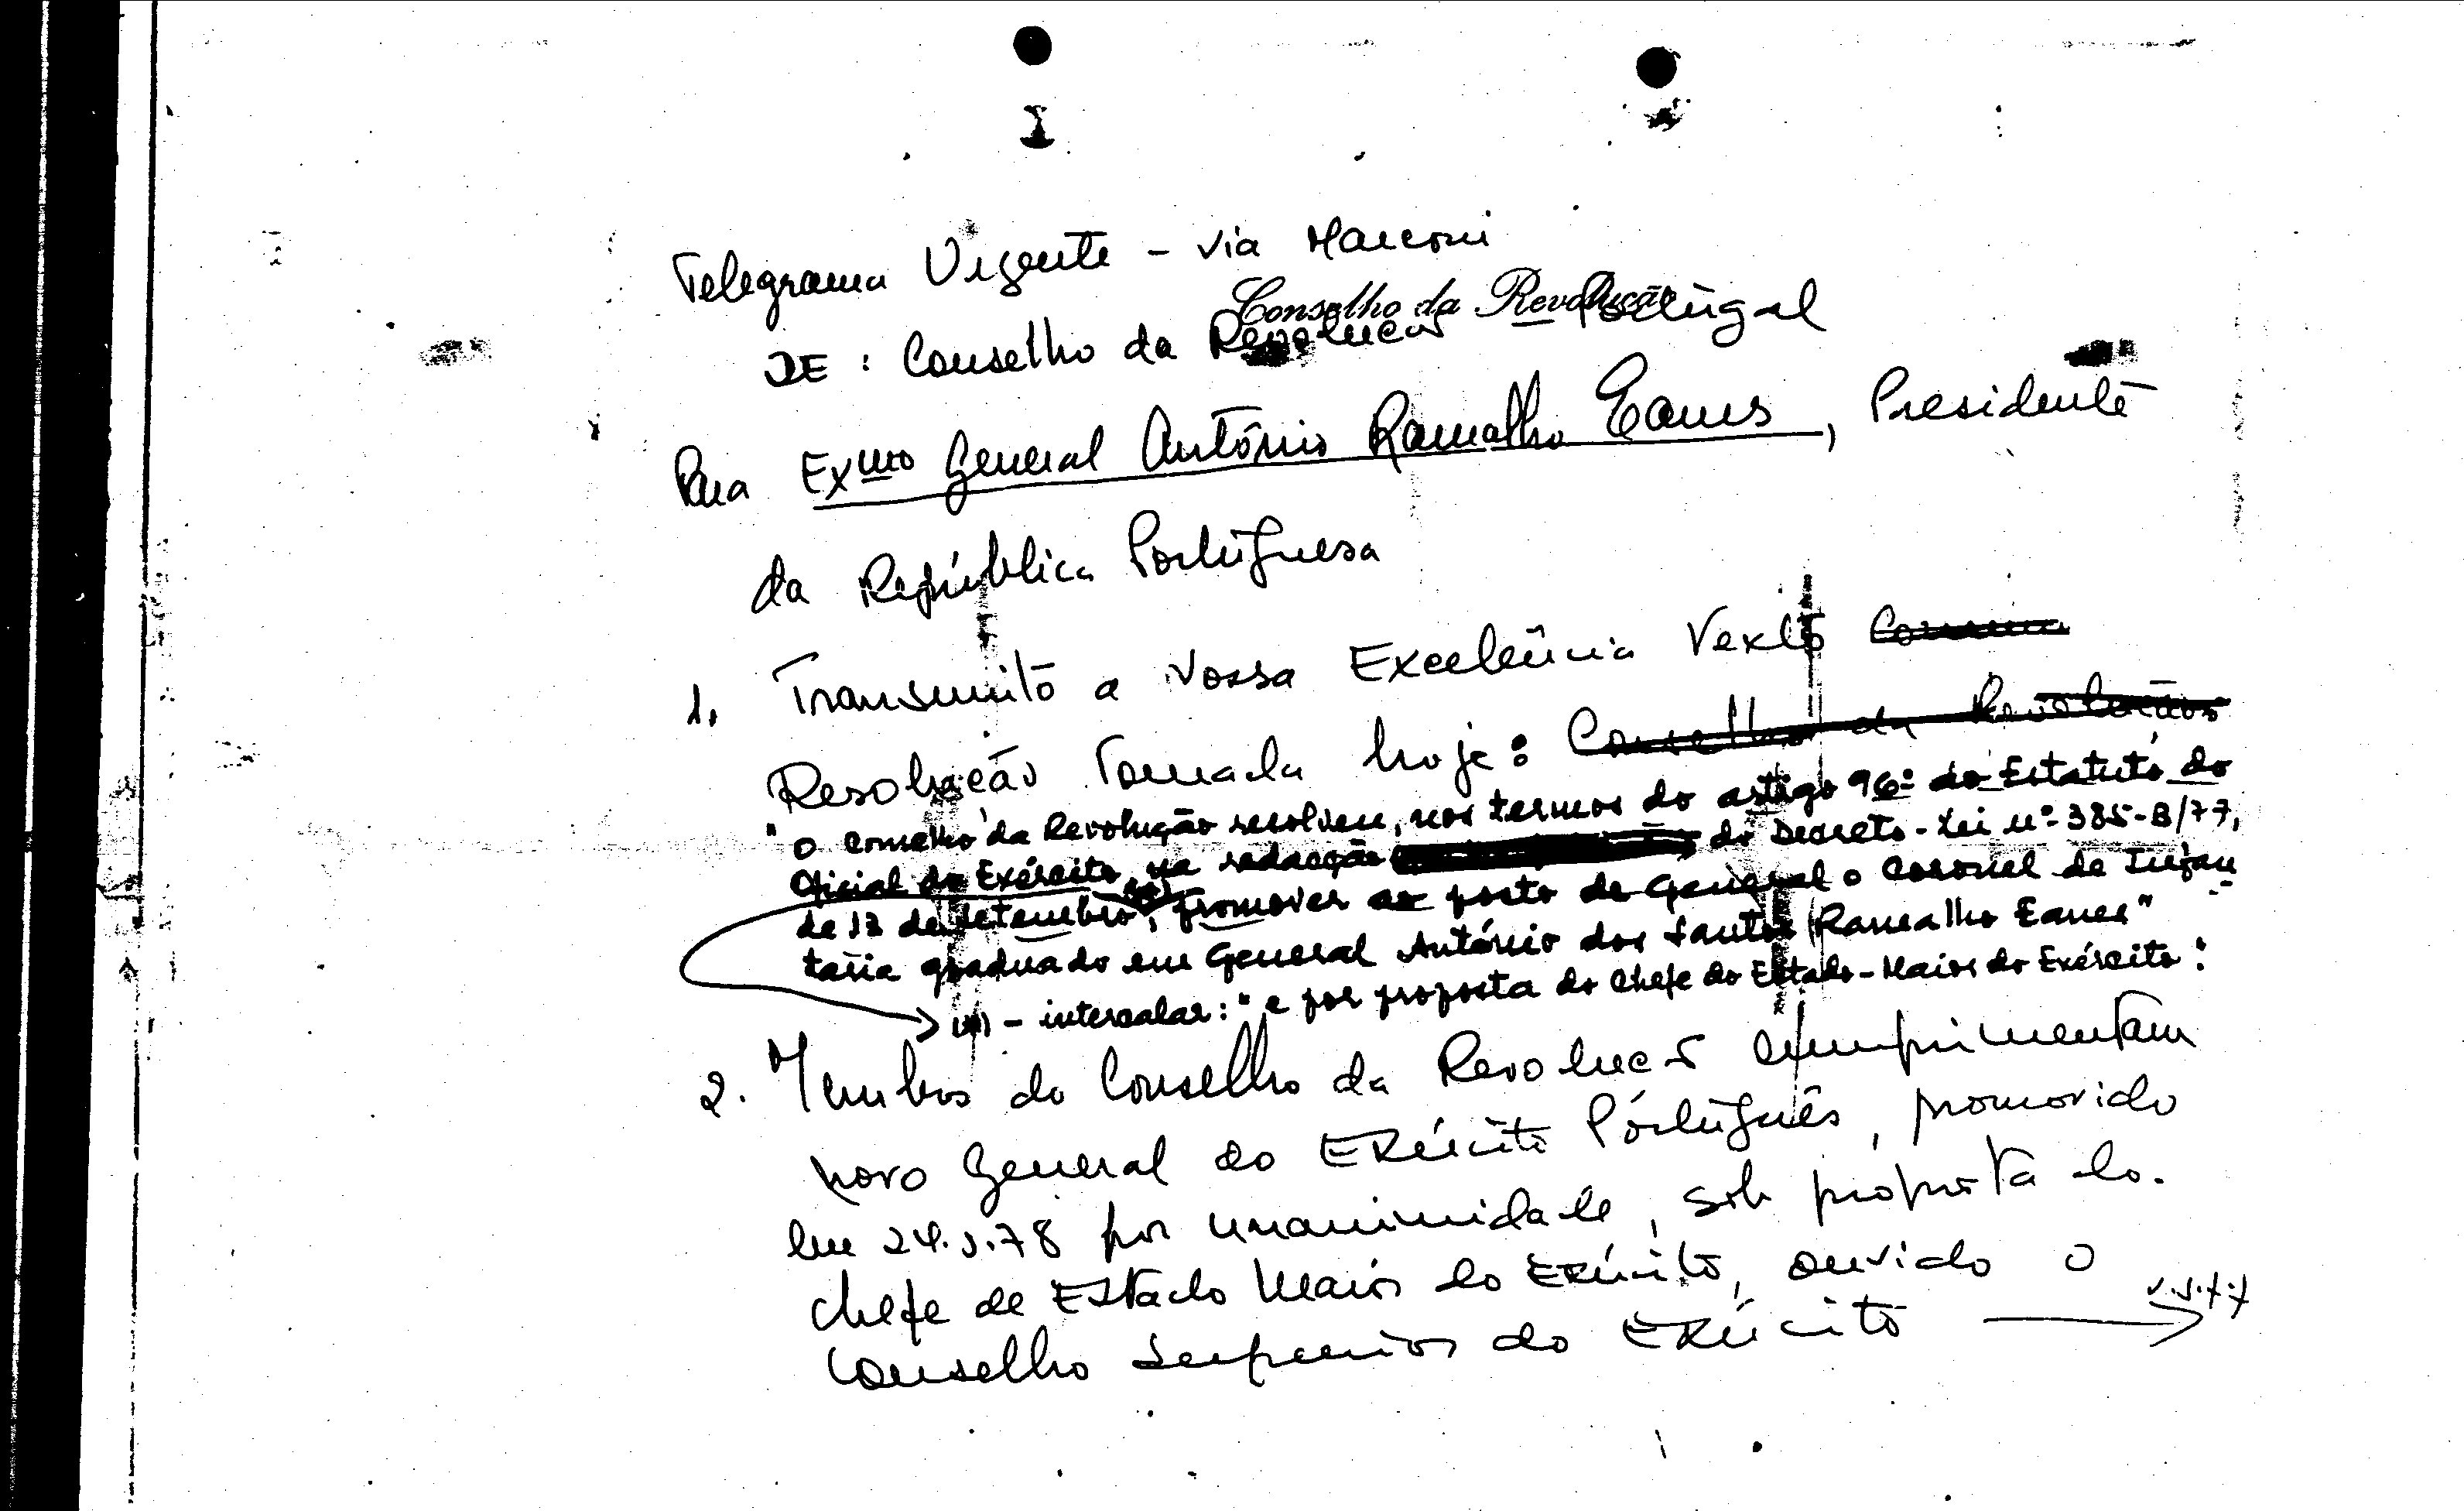 Telegrama Urgente - via Marconi
Conselho da Revolução
DE : Conselho da Revolução Portugal
Para Exmo General António Ramalho Eanes, Presidente
da República Portuguesa
1. Transmito a Vossa Excelência Texto
Resolução tomada hoje: Conselho da Revolução
"O Conselho da Revolução resolveu, nos termos do artigo 96º do Estatuto do
Oficial do Exército, na redacção do Decreto-Lei nº 385-B/77,
de 13 de Setembro (*), promover ao posto de General o Coronel de Infan
taria graduado em General António dos Santos Ramalho Eanes"
(*) - intercalar: "e por proposta do Chefe do Estado-Maior do Exército:
2. Membros do Conselho da Revolução cumprimentam
novo General do Exército Português, promovido
em 24.5.78 por unanimidade, sob proposta do.
Chefe de Estado Maior do Exército, ouvido o
Conselho Superior do Exército
v.s.f.f